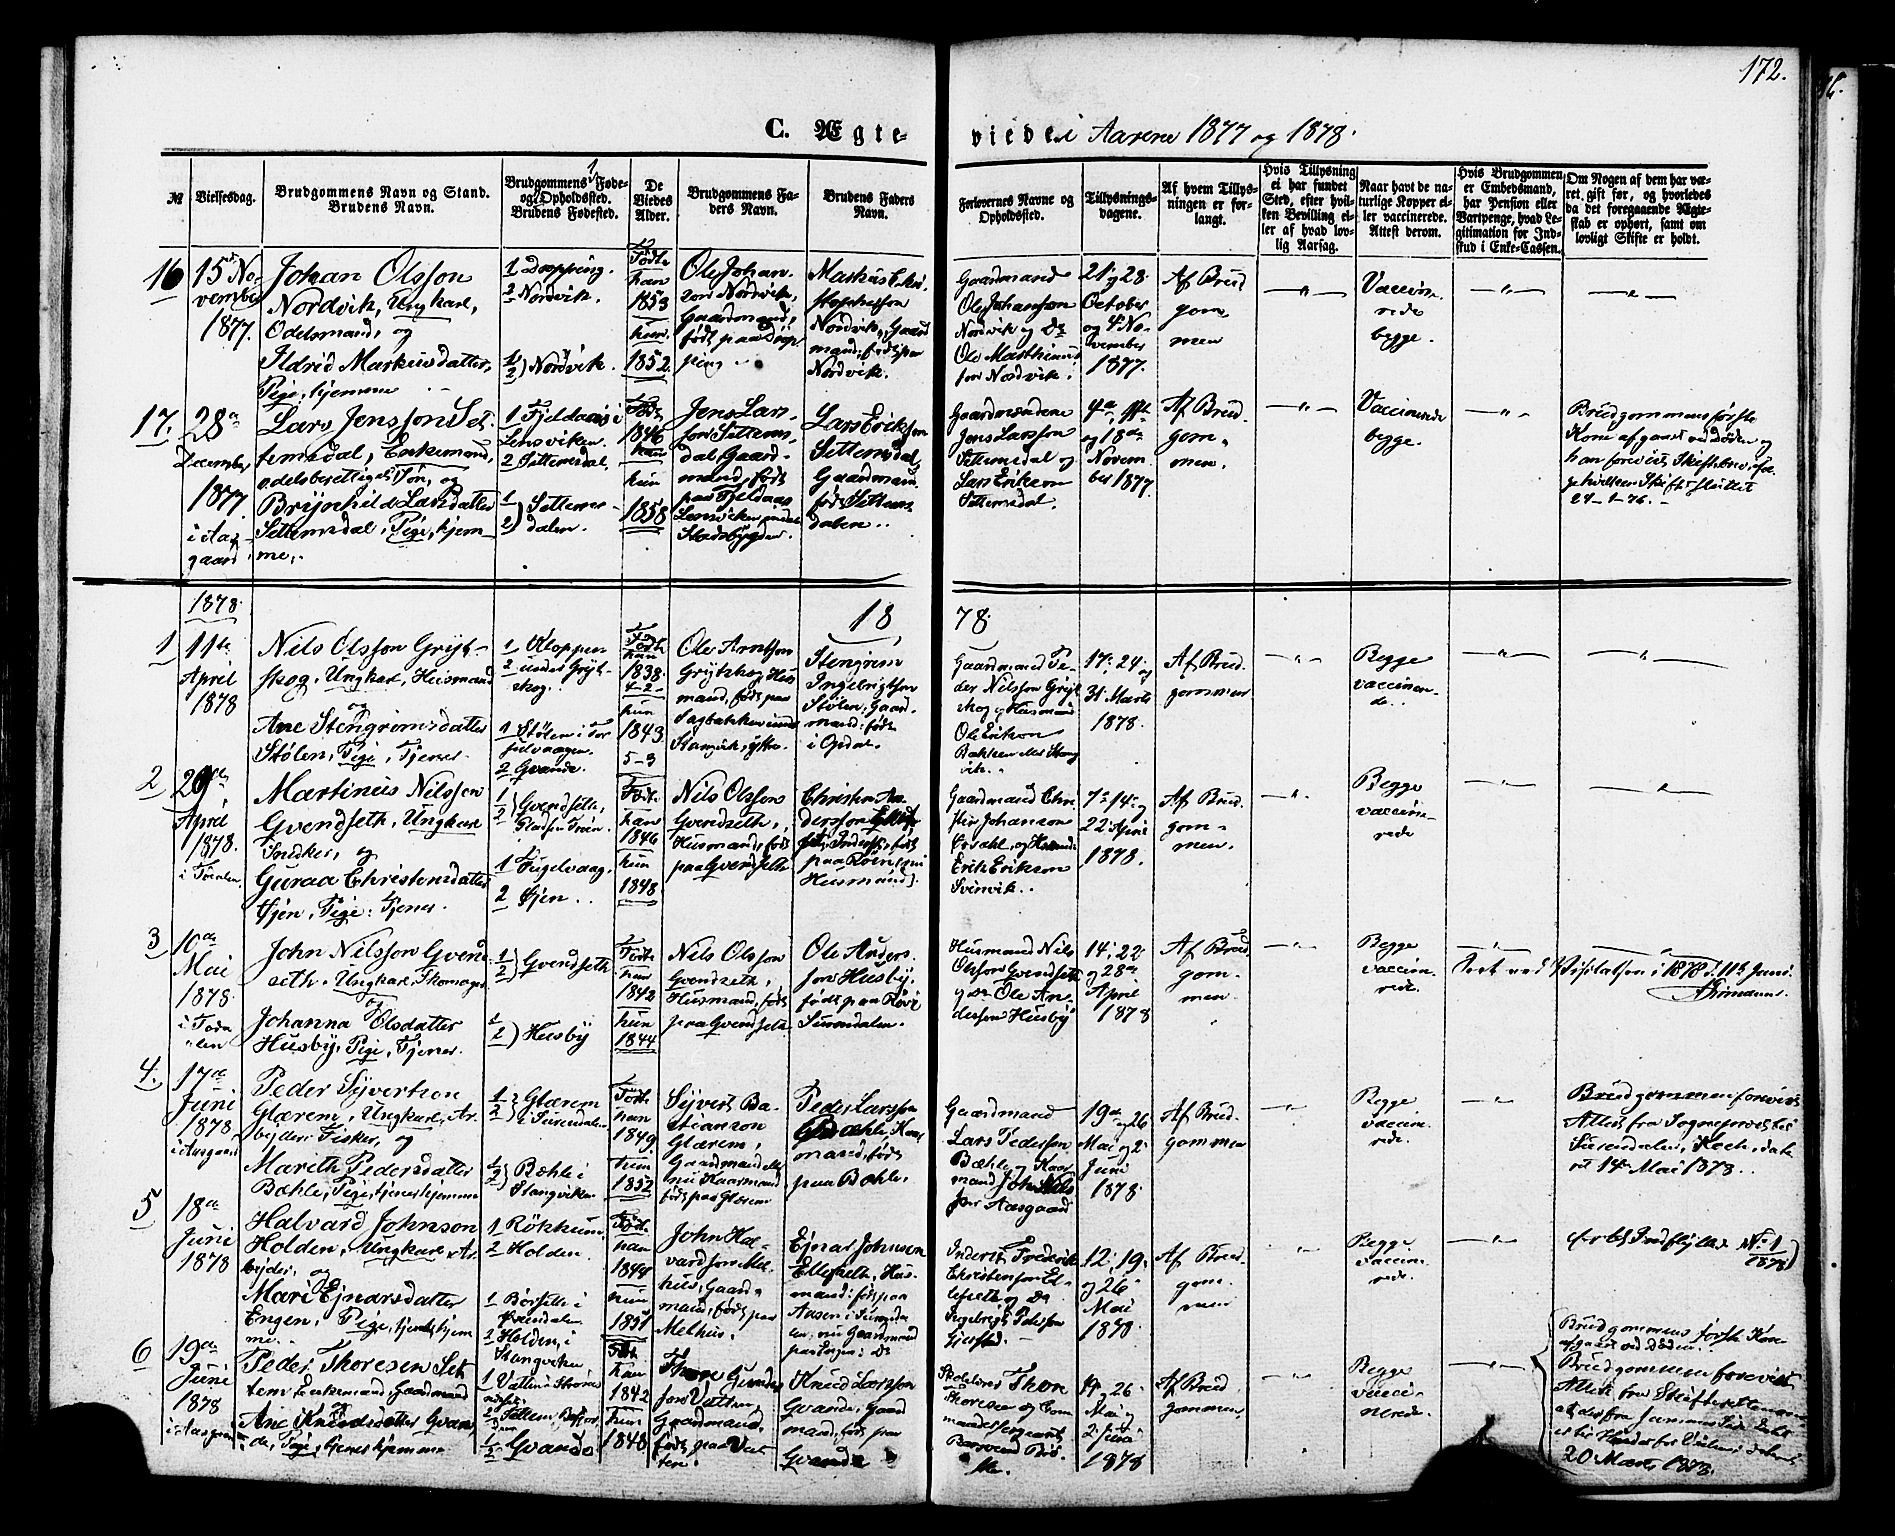 172.
C. Ægte-
viede i Aarene 1877 og 1878.
№
Vielsesdag.
Brudgommens Navn og Stand.
Brudens Navn.
Brudgommens Føde-
og Opholdssted.
Brudens Fødested.
De
Viedes
Alder.
Brudgommens Fa-
ders Navn.
Brudens Faders
Navn.
Forlovernes Navne og
Opholdssted.
Tillysnings-
dagene.
Af hvem Tillys-
ningen er for-
langt.
Hvis Tillysning
ei har fundet
Sted, efter hvil-
ken Bevilling el-
ler af hvad lov-
lig Aarsag.
Naar havt de na-
turlige Kopper el-
ler vaccinerede.
Attest derom.
Hvis Brudgommen
er Embedsmand,
har Pension eller
Vartpenge, hvad Le-
gitimation for Ind-
skud i Enke-Cassen.
Om Nogen af dem har væ-
ret gift før, og hvorledes
da det foregaaende Ægte-
skab er ophørt, samt om
lovligt Skifte er holdt.
16
15de No-
vember
1877.
Johan Olsson
Nordvik, Ungkarl,
Odelsmand, og
Ildrid Markusdatter,
Pige, hjemme
1 Dropping.
2 Nordvik.
1
2) Nordvik.
Født
han
1853
hun
1852
Ole Johan-
son Nordvik,
Gaardmand,
født paa Drop-
ping
Markus Chri-
stophersson
Nordvik, Gaard
mand, født paa
Nordvik.
Gaardmænd
Ole Johanson
Nordvik og Do
Ole Mathias
son Nordvik.
21 og 28
October
og 4 No-
vember
1877.
Af Brud
gom
men
— " —
Vaccine-
rede
begge.
— " —
— " —
17.
28de
December
1877
i Aas-
gaard
Lars Jensson Set-
temsdal, Enkemand,
odelsberettiget Søn, og
Brynhild Larsdatter
Settemsdal, Pige, hjem-
me.
1 Fjeldaas i
Lensviken
2 Settemsdal.
1
2) Settems-
dalen.
Født
1846
han
hun
1858
Jens Lars-
son Settems-
dal, Gaard-
mand, født
paa Fjeldaas
Lensviken under
Stadsbygden.
Lars Erikson
Settemsdal,
Gaardman,
født Settems
dalen.
Gaardmændene
Jens Larsson
Settemsdal og
Lars Erikson
Settemsdal.
4de, 11te
og 18de
Novem
ber 1877.
Af Brud
gom-
men.
— " —
Vaccinerede
begge.
— " —
Brudgommens første
Kone afgaaet ved Døden og
han forevist Skiftebrev
Skifte sluttet
24-1-76.
1878.
18
78.
1
11te
April
1878
Nils Olsson Gryt-
skog, Ungkar, Husmand
og
Ane Stengrimsdatter
Stølen, Pige, Tjener.
1 Kloppen
2 under Gryt-
skog.
1 Stølen i Tor
julvaagen.
2 Gvande.
Født
han
1838
4-2-
hun
1843
5-3
Ole Arntson
Grytskog Hus
mand, født paa
Sagbakken under
Stangvik, ytre.
Stengrim
Ingebrigtson
Stølen, Gaard-
mand, født
i Opdal.
Gaardmand Pe-
der Nilsson Gryt
skog og Husmand
Ole Erikson
Bakken Stang
vik.
17, 24 og
31 Marts
1878.
Af Brud
gommen
— " —
Begge
vaccinere-
de.
— " —
— " —
2
26de
April
1878.
i Todalen.
Martinus Nilsson
Gvendseth, Ungkarl
Snedker, og
Guraa Christensdatter
Øjen, Pige, Tjener.
1
2) Gvendseth,

1 Fugelvaag.
2 Øjen.
Født
han
1846
hun
1848
Nils Olsson
Gvendseth,
Husmand, født
paa Gvendseth
Christen An-
dersson
født
paa Røen (nu
Husmand).
Gaardmand Chri-
sten Johanson
og Husmand
Erik Erikson
Svinvik.
7, 14 og
22 April
1878.
Af Brud
gom-
men.
— " —
Begge
vaccine-
rede
— " —
— " —
3
10de
Mai
1878
i Toda
len
John Nilsson Gvend
seth, Ungkar, Skomager
og
Johanna Olsdatter
Husby, Pige, Tjener.
1
2) Gvendseth
1
2) Husby
Født
han
1842
hun
1844
Nils Olsson
Gvendseth
Husmand, født
paa Gvendseth
Ole Anders-
son Husby,
født paa Røv i
Surendalen.
Husmand Nils
Olsson Gvendseth
og Do Ole An-
dersson Husby
14, 22
og 28de
April
1878
Af Brud
gom
men
— " —
Begge
vaccine-
rede.
Seet ved Visitatsen i 1878 d. 11te Juni.
4.
17de
Juni
1878.
i Aasgaard
Peder Syvertson
Glærem, Ungkarl, Ar-
bejder Fisker, og
Marith Pedersdatter
Bæhle, Pige, tjener hjemme
1
2) Glærem
i Surendalen.
1
2) Bæhle i
Stangviken
Født
han
1849.
hun
1852
Syvert Ba-
stianson
Glærem,
Gaardmand
nu Kaarmand
født paa Glærem
Peder Larsson
Bæhle, Kaar
mand, født
paa Bæhle.
Gaardmand
Lars Pederson
Bæhle og Kaar
mand John Nils
son Aasgaard
19de og 26
Mai og 2
Juni
1878
Af Brud-
gommen
— " —
Begge
vaccine-
rede.
— " —
Brudgommen forevist
Attest fra Sognepræsten
Surendalen, Koch, date
ret 14de Mai 1878.
5
18de
Juni
1878
Halvard Johnson
Holden, Ungkarl, Ar
bejder, og
Mari Ejnarsdatter
Engen, Pige, tjener hjem
me.
1 Røkkum
2 Holden.
1 Børseth i
Øvendalen
2 Holden, i
Stangviken
Født
han
1849
hun
1851
John Hal-
vardson Mel-
hus, Gaard-
mand, født paa
Melhus.
Ejnar Johnson
Ellefseth, Hus-
mand, født paa
Aasen i Surenda
len, nu Gaardmand
paa
Inderst Frederik
Christenson El-
lefseth og Do
Ingebrigt Pederson
Gjersted.
12, 19
og 26
Mai
1878
Af Brud-
gom-
men
— " —
Begge
vaccine-
rede.
— " —
№ 1
1878)
6
19de
Juni
1878
i Aasgaard
Peder Thoresen Set
tem, Enkemand, Gaardmand
og
Ane Knudsdatter Gvan-
de, Pige, tjener hjemme
1 Vatten i

2 Settem,
1
2) Gvande
Født
han
1842
hun
1848
Thore Gunder
son Vatten,
Gaardmand,
født paa Vat-
ten.
Knud Larsson
Gvande, Gaard
mand, født paa
Gvande
Thore
Thoresen og Com
mandersergeant

19, 26
Mai og
2 Juni
1878
Af Brud
gommen
— " —
Begge
vacci-
nerede.
— " —
Brudgommens første Kone
afgaaet ved Døden.
Brudgommen forevist
Attest fra Skifteretten

20 Marts 1878.